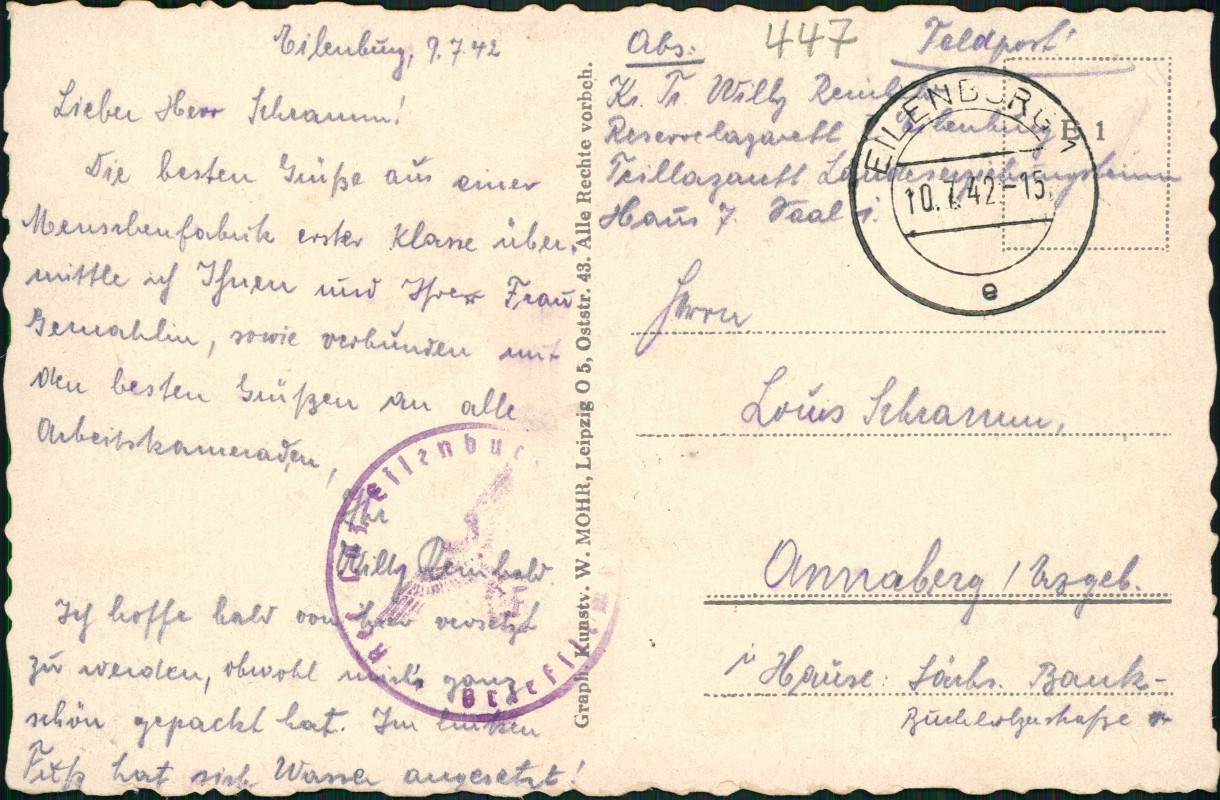 Eilenburg, 9.7.42
Lieber Herr Schramm!
Die besten Grüße aus einer
Menschenfabrik erster Klasse über-
mittle ich Ihnen und Ihrer Frau
Gemahlin, sowie verbunden mit
den besten Grüßen an alle
Arbeitskameraden,
Ihr
Willy Reinhold
Ich hoffe bald von hier versetzt
zu werden, obwohl mich's ganz
schön gepackt hat. Im linken
Fuß hat sich Wasser angesetzt!
Eilenbur
Graph. Kunstv. W. MOHR, Leipzig O 5, Oststr. 43. Alle Rechte vorbeh.
Abs:
447
Feldpost!
Kr. Tr. Willy Reinhold
Reservelazarett Eilenburg
Teillazarett Landeserziehungsheim
Haus 7. Saal 1.
E 1
EILENBURG
10.7.42.-15
e
Herrn
Louis Schramm,
Annaberg / Erzgeb.
i Hause: Sächs. Bank-
Buchholzerstraße